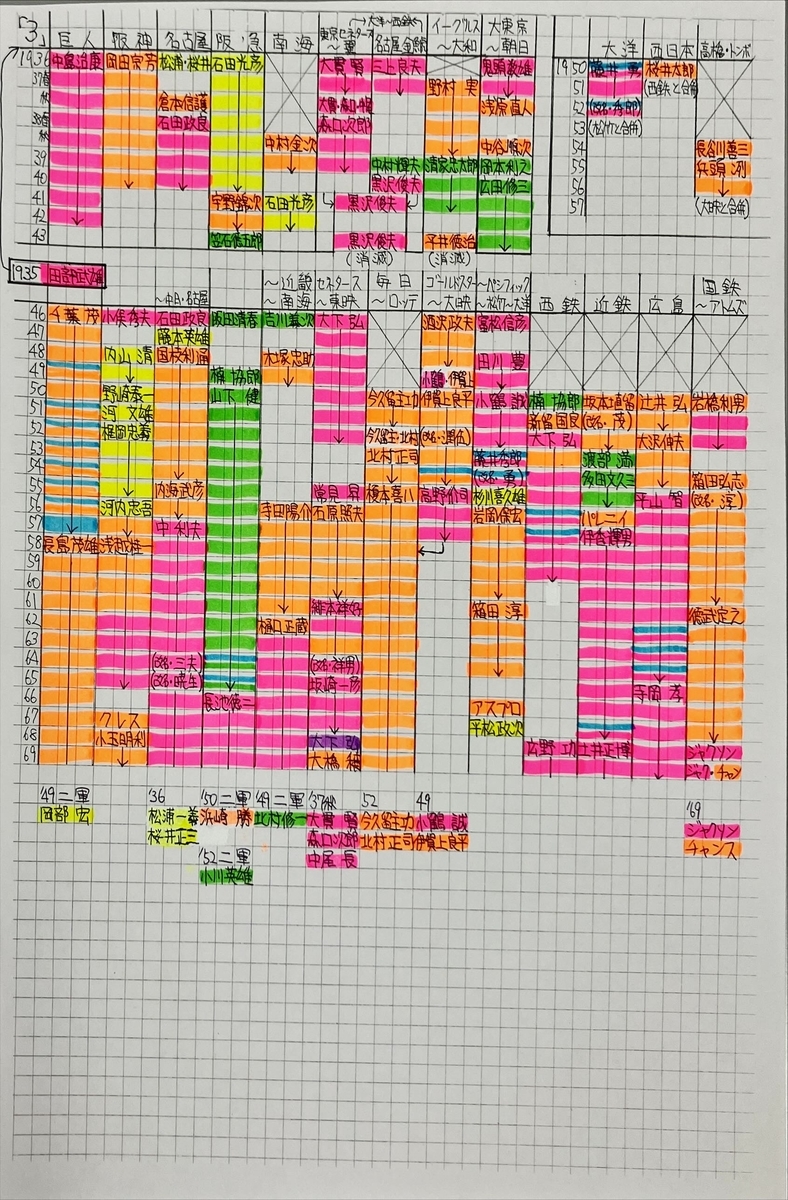 「3」 巨人 阪神 名古屋 阪急 南海 東京セネタース〜翼 大洋〜西鉄 名古屋金鯱 イーグルス〜大和 大東京〜朝日 大洋 西日本 高橋・トンボ
1936 中島治康 岡田宗芳 松浦・桜井 石田光彦 大貫 賢 三上良夫 鬼頭数雄 1950 藤井 勇 桜井太郎
37春 野村 実 51 (西鉄と合併)
秋 倉本信護 大貫・森口・中尾 浅原直人 52 (松竹と合併)
38春 石田政良 森口次郎 53
秋 中村金次 中谷順次 54 長谷川善三
39 中村輝夫 清家忠太郎 岡本利之 55 兵頭 冽
40 黒沢俊夫 広田修三 56
41 宇野錦次 石田光彦 黒沢俊夫 57 (大映と合併)
42
43 笠石徳五郎 黒沢俊夫 平井徳治
(消滅) (消滅)
1935 田部武雄
〜中日・名古屋 〜近畿〜南海 セネタース〜東映 毎日〜ロッテ ゴールドスター〜大映 〜パシフィック〜松竹〜大洋 西鉄 近鉄 広島 国鉄〜アトムズ
46 千葉 茂 小俣秀夫 石田政良 阪田清春 吉川義次 大下 弘 酒沢政夫 富松信彦
47 藤本英雄
48 内山 清 国枝利通 木塚忠助 田川 豊
49 楠 協郎 小鶴・伊賀上
50 野崎泰一 山下 健 今久留主功 伊賀上良平 小鶴 誠 楠 協郎 坂本直留 辻井 弘 岩橋利男
51 河 文雄 新留国良 (改名・茂)
52 梶岡忠義 今久留主・北村 大下 弘 大沢伸夫
53 北村正司 藤井勇郎 渡部 満
54 (改名・勇) 多田文久三 箱田弘志
55 内海武彦 常見 昇 榎本喜八 高野价司 杉川喜久雄 平山 智 (改名・淳)
56 河内忠吾 寺田陽介 石原照夫 岩岡保宏 パレニイ
57 中 利夫 伊香輝男
58 長島茂雄 浅越桂一
59
60
61 緋本祥好 箱田 淳 徳武定之
62 樋口正蔵
63
64 (改名・三夫) (改名・祥男)
65 (改名・暁生) 坂崎一彦
66 長池徳二 寺岡 孝
67 クレス アスプロ
68 小玉明利 大下 弘 平松政次 広野 功 土井正博 ジャクソン
69 大橋 穣 ジャク・チャン
'49二軍 '36 '50二軍 '49二軍 '37秋 52 49 '69
岡部 宏 松浦一義 浜崎 勝 北村修一 大貫 賢 今久留主功 小鶴 誠 ジャクソン
桜井正三 '52二軍 森口次郎 北村正司 伊賀上良平 チャンス
小川英雄 中尾 長